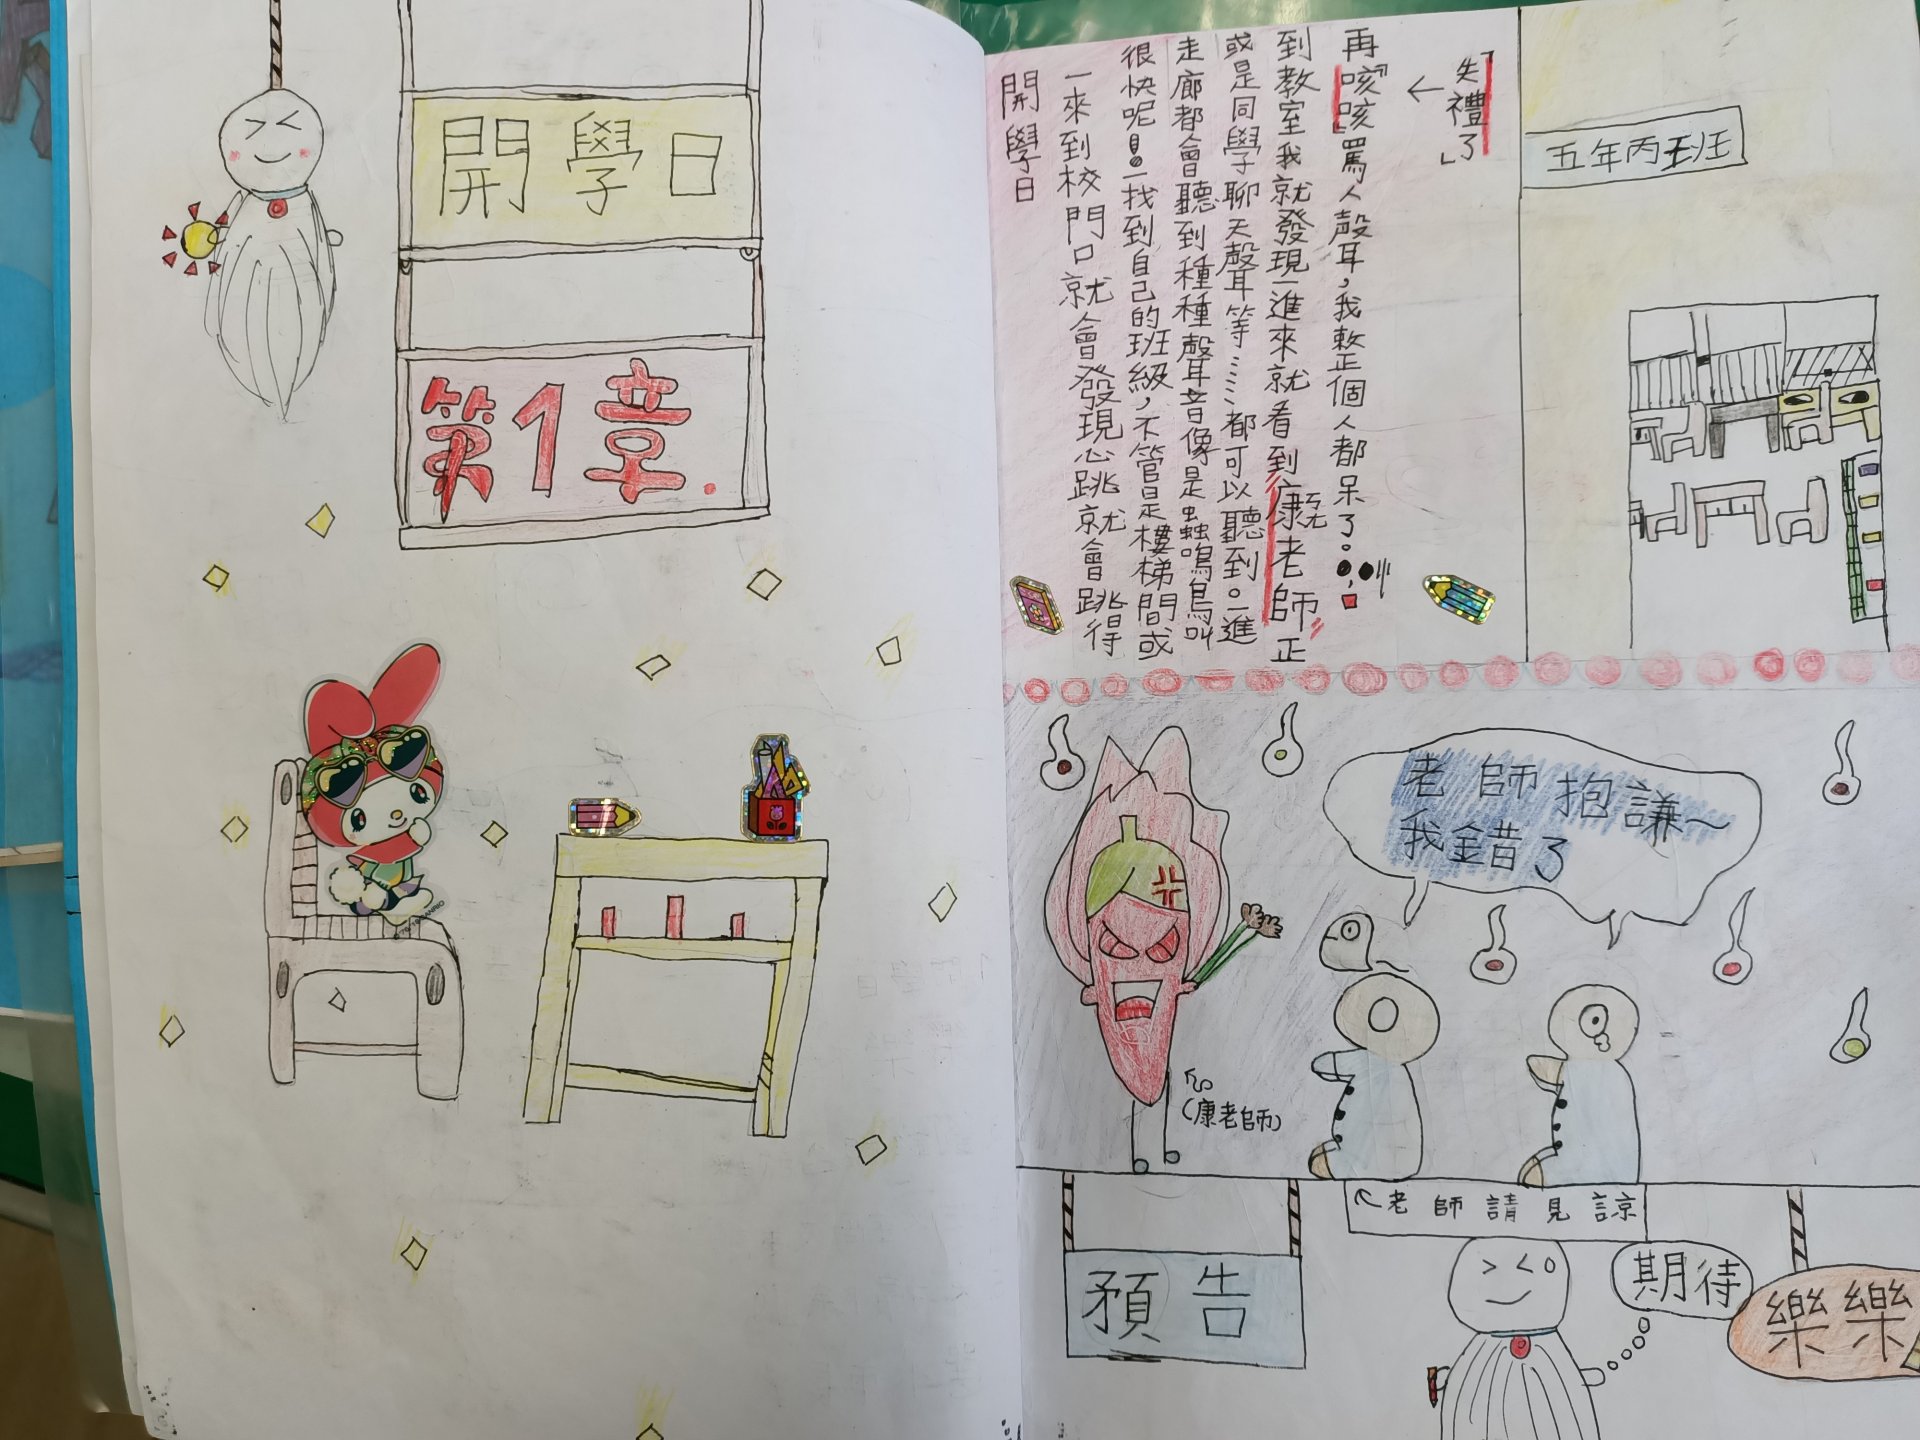 開學日
第1章.
開學日
一來到校門口就會發現心跳就會跳得
很快呢!!一找到自己的班級,不管是樓梯間或
走廊都會聽到種種聲音像是蟲鳴鳥叫
或是同學聊天聲等……都可以聽到。一進
到教室我就發現一進來就看到康老師正
再"咳咳"罵人聲,我整個人都呆了。
←
「失禮了」
五年丙班
老師抱謙~
我錯了
(康老師)
老師請見諒
預告
期待
樂樂
SANRIO